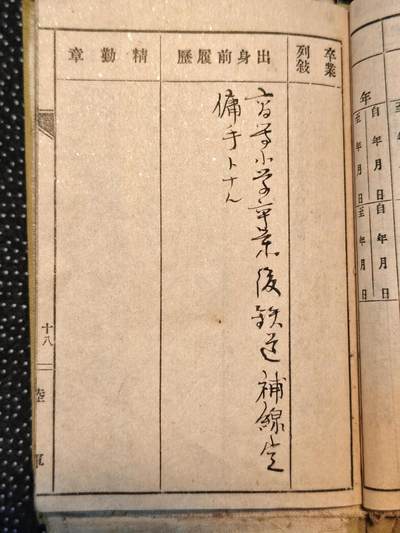 卒業列敍
出身前履歴
高等小学卒業後鉄道補線定
傭手トナル
精勤章
十八
陸軍
年
自年月日
至年月日
自年月日
至年月日